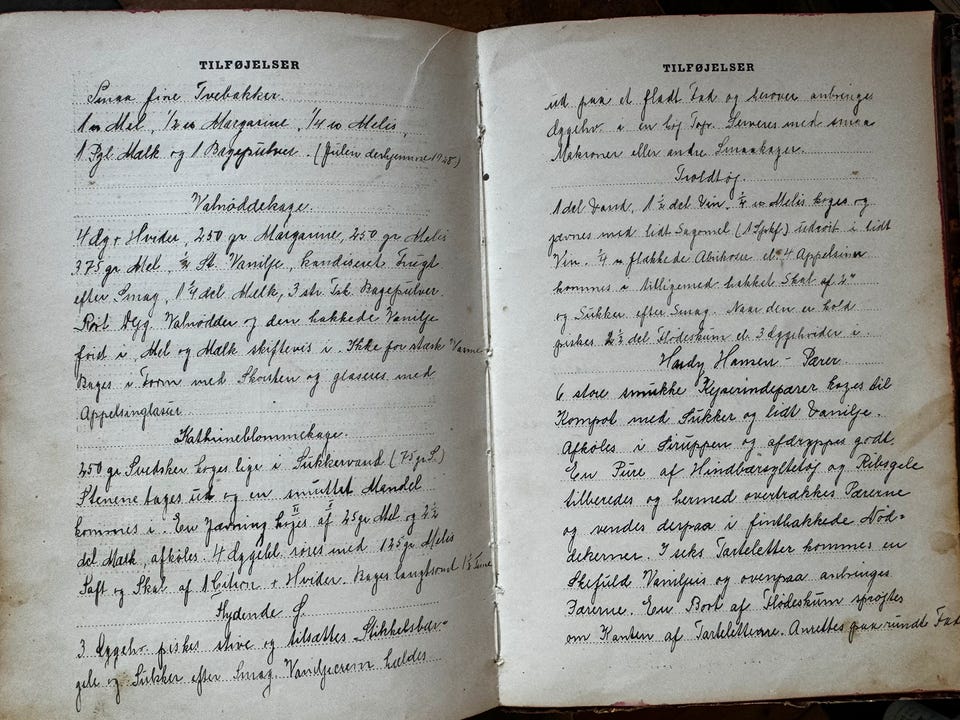 TILFØJELSER
Smaa fine Tvebakker.
1 Mel, 1/2 Margarine, 1/4 Melis,
1 Pgl. Mælk og 1 Bagepulver. (Julen derhjemme
Valnøddekage.
4 Æg + Hvider, 250 gr Margarine, 250 gr Melis
375 gr Mel, 1/2 St. Vanilje, kandiseret Frugt
efter Smag, 1 1/4 del Mælk, 3 str. Tsk. Bagepulver.
Rørt Dejg. Valnødder og den hakkede Vanilje
først i, Mel og Mælk skiftevis i. Ikke for stærk Varme
Bages i Form med Skorsten og glaseres med
Appelsinglasur.
Kathrineblommekage.
250 gr Svedsker koges lige i Sukkervand (75 gr S.)
Stenene tages ud og en smuttet Mandel
kommes i. En Jævning koges af 25 gr Mel og 2 1/2
del Mælk, afkøles. 4 Æggebl. røres med 125 gr Melis
Saft og Skal af 1 Citron + Hvider. Bages langsomt 1 1/2 Time
Flydende Ø.
3 Æggehv. piskes stive og tilsættes Stikkelsbær-
gele og Sukker efter Smag. Vanljecrem hældes
TILFØJELSER
ud paa et fladt Fad og herover anbringes
Æggehv. i en høj Top. Serveres med smaa
Makroner eller andre Smaakager.
Troldtøj.
1 del Vand, 1 1/2 del Vin, 1/4 Melis koges og
jævnes med lidt Sagomel (1 Spskf.) udrørt i lidt
Vin. 1/4 flækkede Abrikoser el. 4 Appelsiner
kommes i tilligemed hakket Skal af 2
og Sukker efter Smag. Naar den er kold
piskes 2 1/2 del Flødeskum el. 3 Æggehvider i.
Hansen - Pærer
6 store smukke Kejserindepærer koges til
Kompot med Sukker og lidt Vanilje.
Afkøles i Siruppen og afdryppes godt.
En Pure af Hindbærsyltetøj og Ribsgele
tilberedes og hermed overtrækkes Pærerne
og vendes derpaa i finthakkede Nød-
dekerner. I seks Tarteletter kommes en
Skefuld Vaniljeis og ovenpaa anbringes
Pærerne. En Bort af Flødeskum sprøjtes
om Kanten af Tarteletterne. Anrettes paa rundt Fad